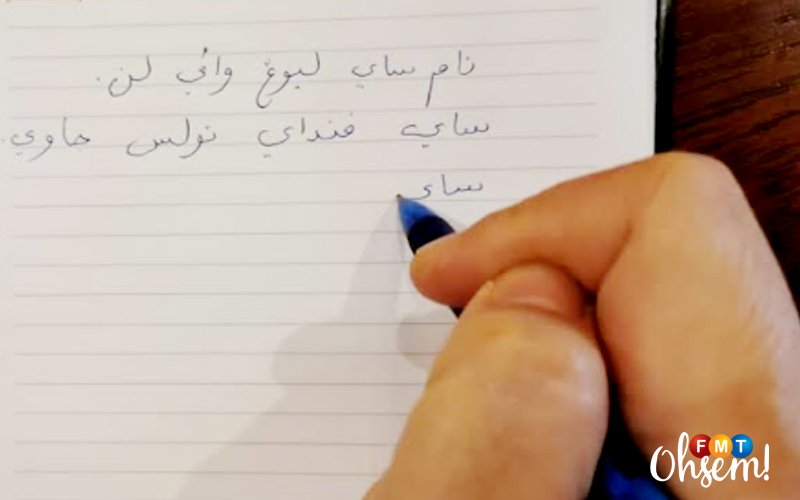 نام ساي ليوڠ وائي لن.
ساي ڤنداي توليس جاوي.
ساي
FMT
Ohsem!